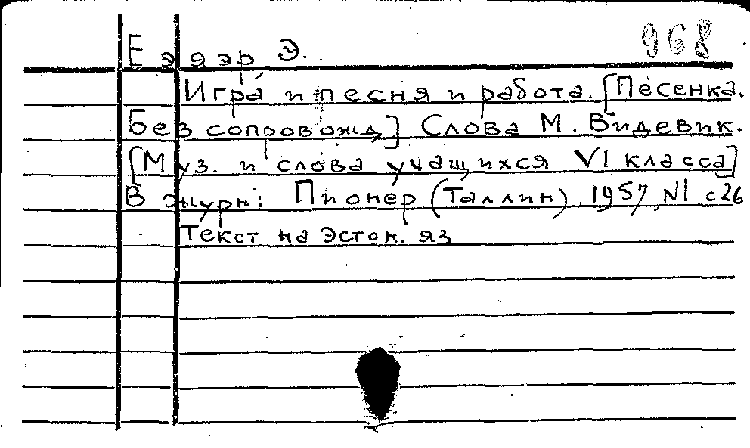 968
Еэдэр Э.
Игра и песня и работа. [Песенка.
Без сопровожд.] Слова М. Видевик.
[Муз. и слова учащихся VI класса]
В журн: Пионер (Таллин) 1957, N1 с 26
Текст на эстон. яз